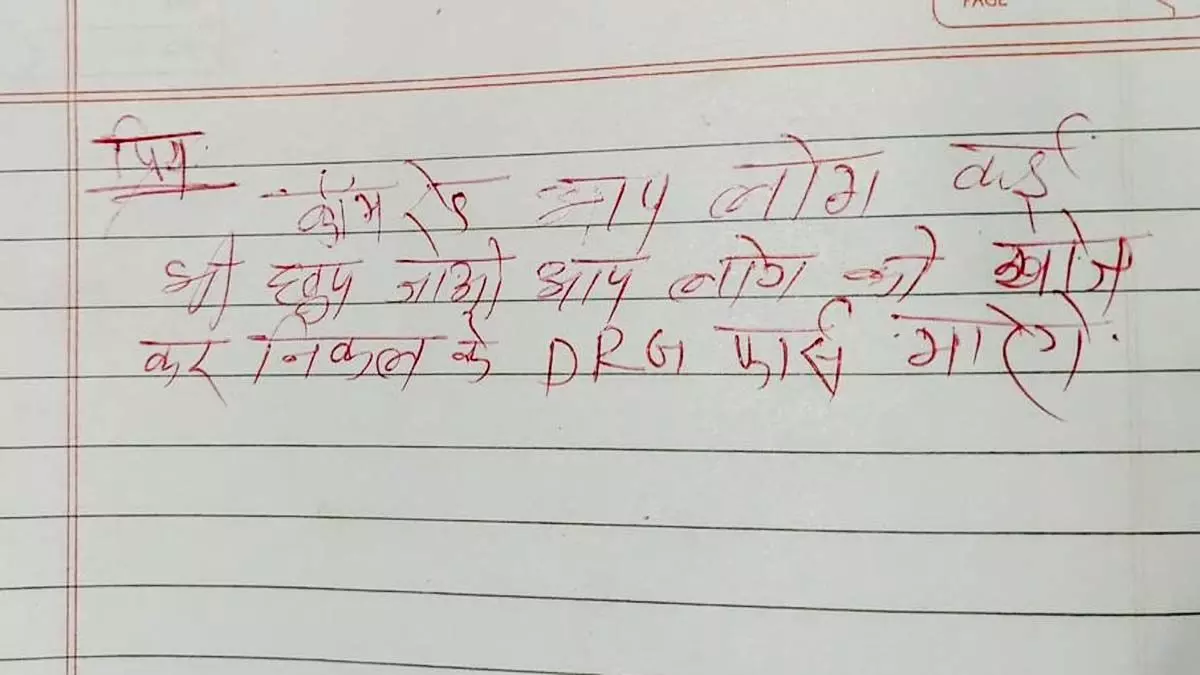 PAGE
प्रिय
कांमरेड आप लोग कई
भी छुप जाओ आप लोग को खोज
कर निकल के DRG फार्स मारेगे